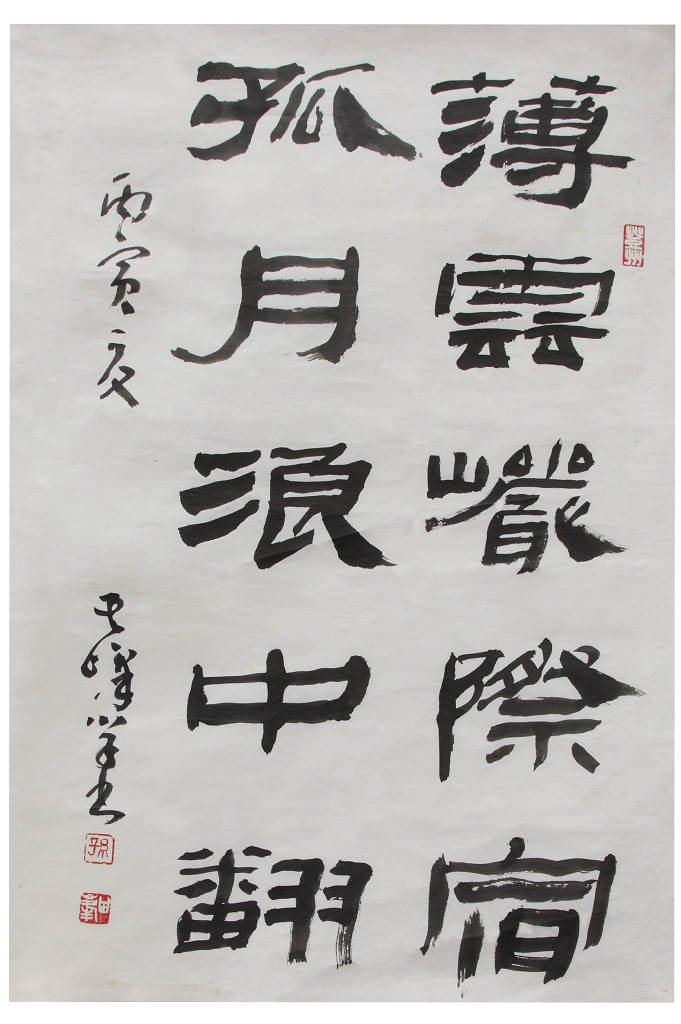 薄雲巖際宿
孤月浪中翻
丙寅夏
其峰学书